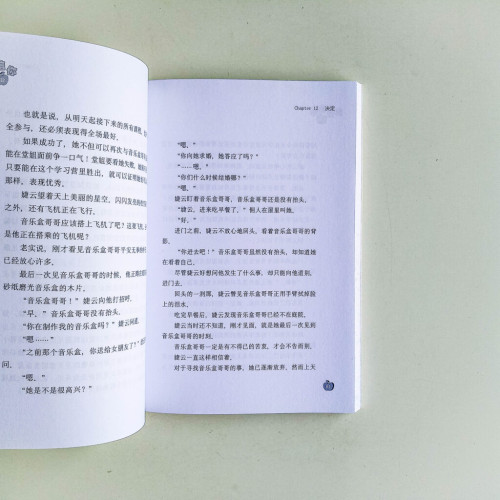 也就是说，从明天起接下来的所有课程，
全参与，还必须表现得全场最好。
如果成功了，她不但可以再次与音乐盒
能在堂姐面前争一口气！堂姐要看她失败，
只要能在这个学习营里胜出，就可以证明
那样，表现优秀。
婕云望着天上美丽的星空，闪闪发亮的
之外，还有飞机正在飞行。
音乐盒哥哥应该搭上飞机了吧？这
是他正在搭乘的飞机呢？
老实说，刚才看见音乐盒哥哥平安无
已经放心许多。
最后一次见音乐盒哥哥的时候，他正
砂纸磨光音乐盒的木片。
“早。”婕云向他打招呼。
“早。”音乐盒哥哥没有抬头。
“你在制作我的音乐盒吗？”婕云问道。
“嗯……”
“之前那个音乐盒，你送给女朋友了？”
问。
“嗯。”
“她是不是很高兴？”
Chapter 12 决定
“嗯。”
“你向她求婚，她答应了吗？”
“……嗯。”
“你们什么时候结婚哪？”
“嗯。”
婕云盯着音乐盒哥哥，音乐盒哥哥还是没有抬头。
“婕云，进来吃早餐了。”佣人在屋里叫她。
“好。”
进门之前，婕云不放心地回头，看着音乐盒哥哥的背
影。
“你进去吧！”音乐盒哥哥虽然没有抬头，却知道她
在看着自己。
尽管婕云好想问他发生了什么事，却只能向他道别，
进门去。
回头的一刹那，婕云瞥见音乐盒哥哥正用手臂拭掉脸
上的泪水。
吃完早餐后，婕云发现音乐盒哥哥已经不在庭院。
婕云当时还不知道，刚才见面，就是她最后一次见到
音乐盒哥哥的时刻。
音乐盒哥哥一定是有不得已的苦衷，才会不告而别，
婕云一直这样相信着。
对于寻找音乐盒哥哥的事，她已逐渐放弃，然而上天